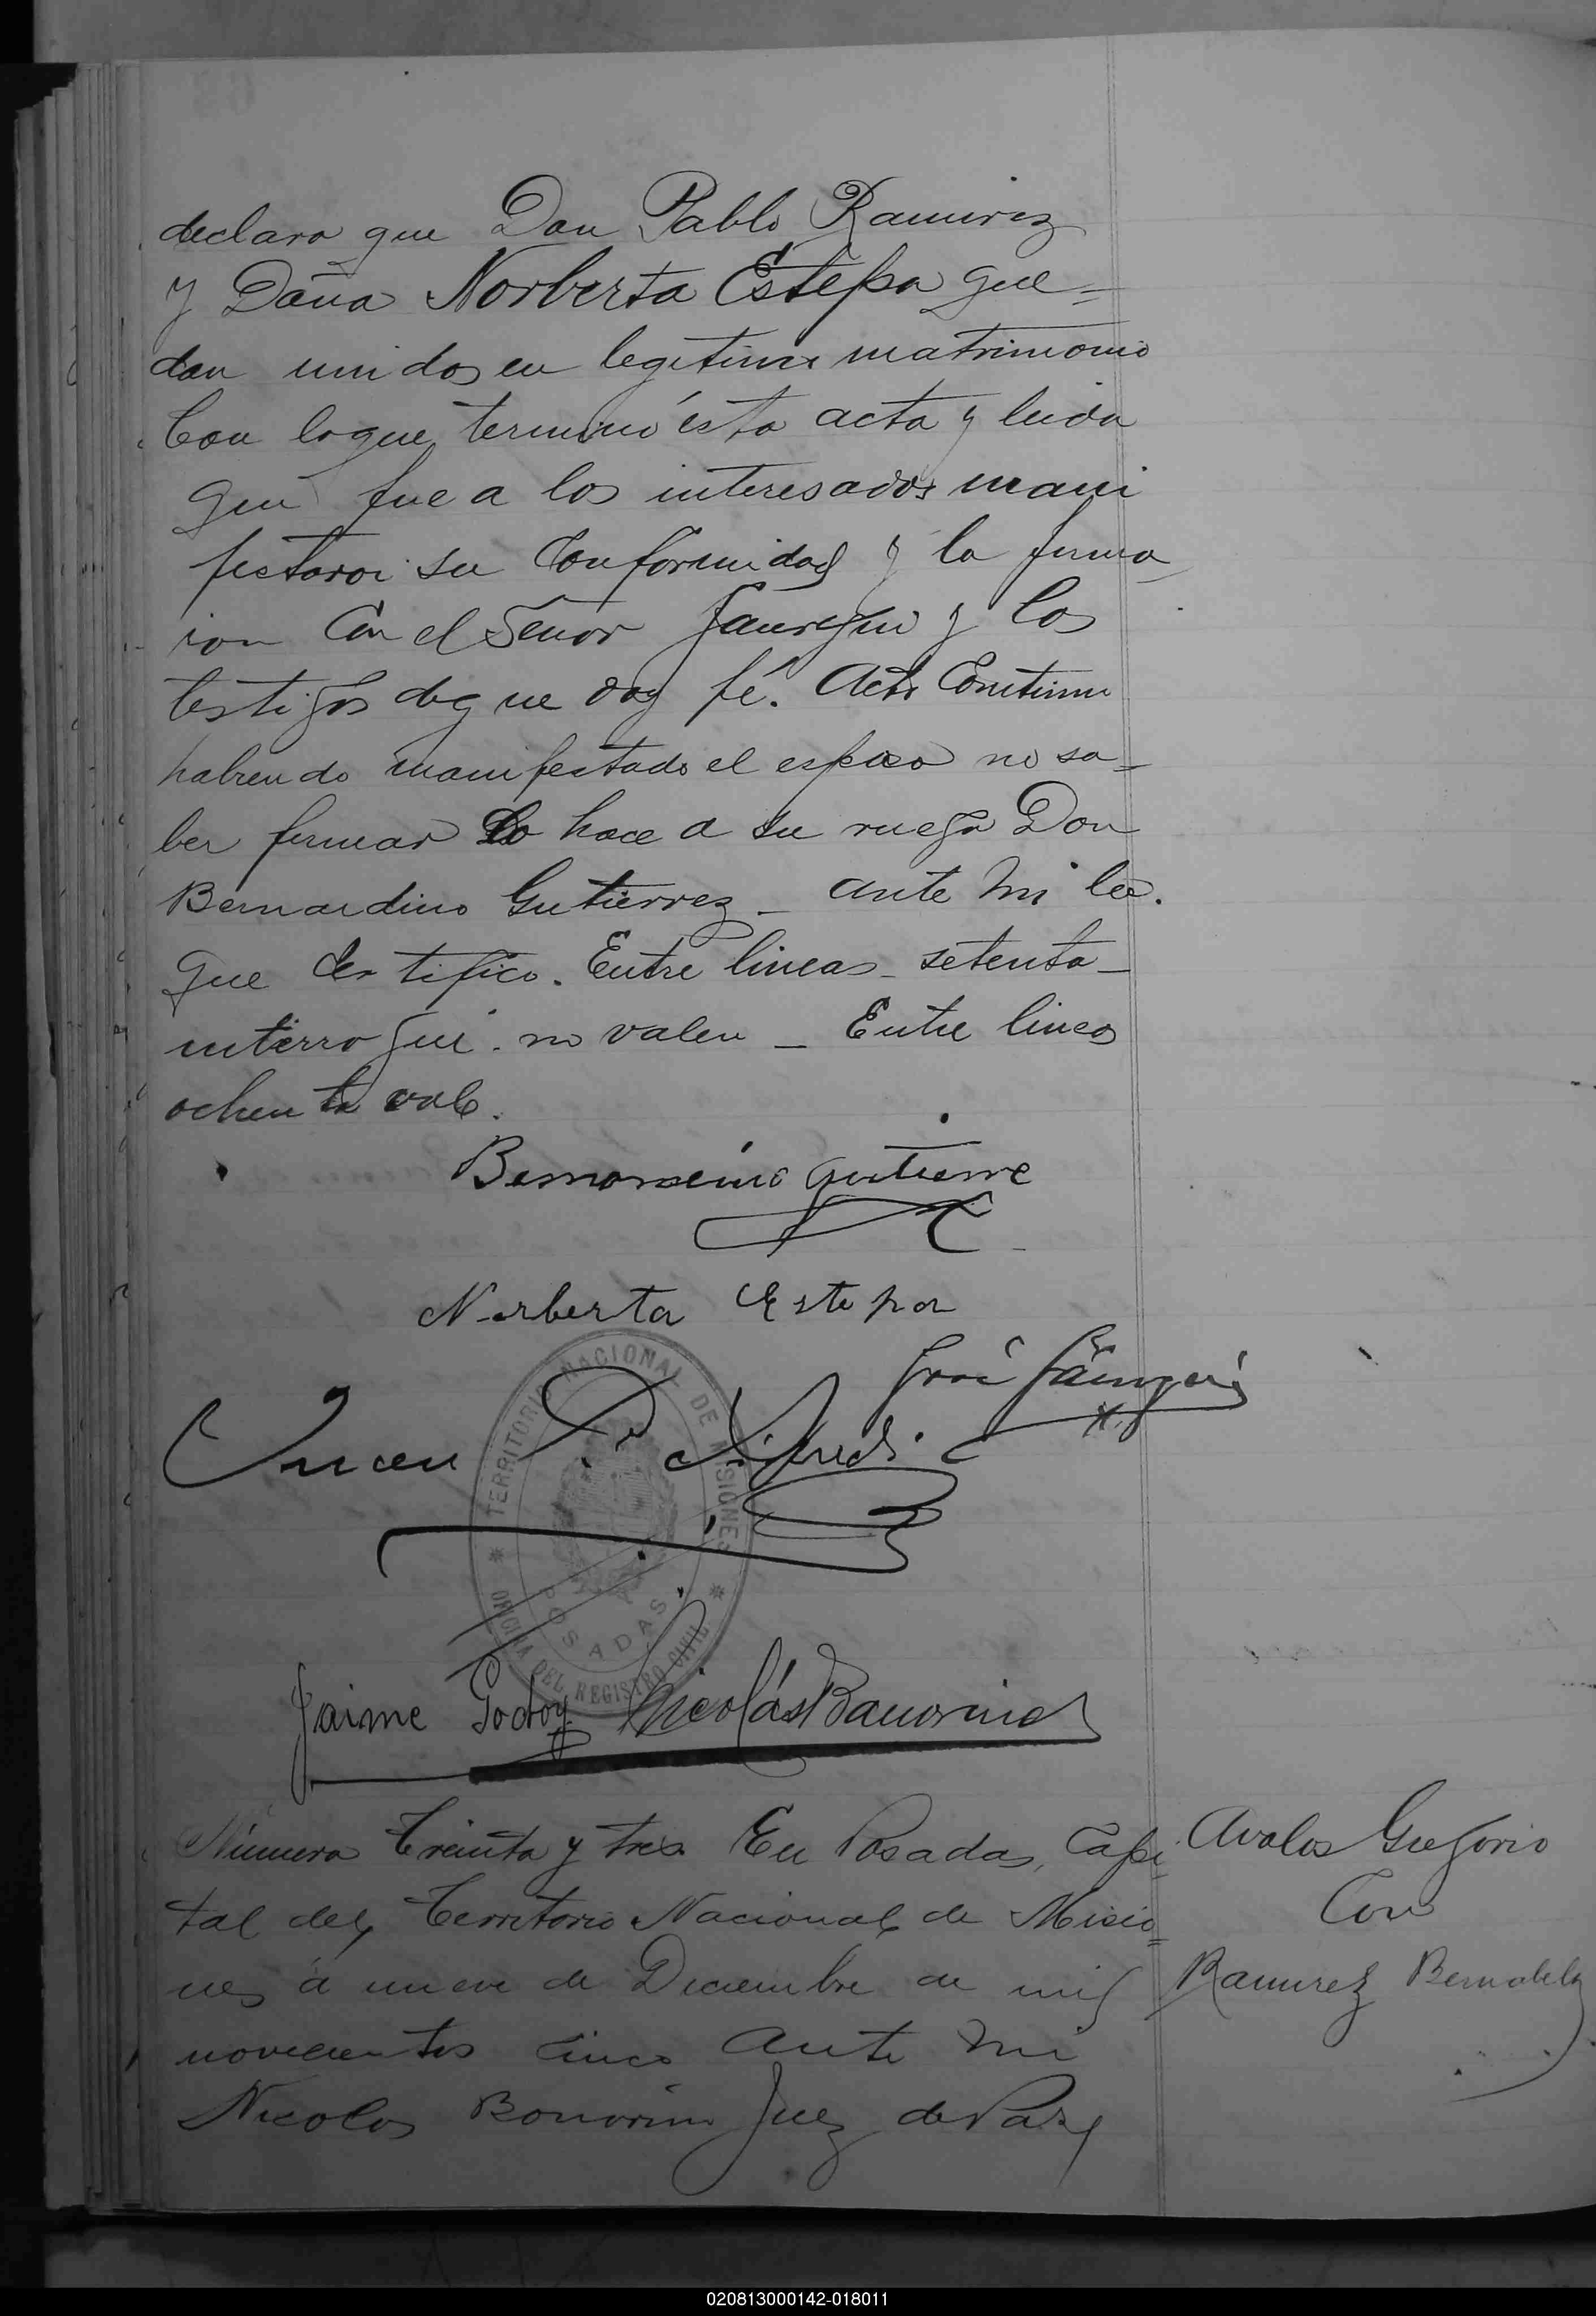 declaro que Don Pablo Ramirez
y Doña Norberta Estepa que=
dan unidos en legitimo matrimonio
Con lo que terminó ésta acta y leida
que fue a los interesados mani
festaron su conformidad y la firma
ron con el Señor Jauregui y los
testigos de que doy fé. Acto Continuo
habiendo manifestado el esposo no sa=
ber firmar lo hace a su ruego Don
Bernardino Gutierrez _ ante mi
que certifico. Entre lineas _ setenta _
interrogué. no valen _ Entre lineas
ochenta vale.
Bernardino Gutierre
Norberta Estepa
José Jáuregui
Juan P.
TERRITORIO NACIONAL DE MISIONES
POSADAS
OFICINA DEL REGISTRO CIVIL
Jaime Godoy Nicolás Bonorino
Número Treinta y tres En Posadas, Capi
tal del Territorio Nacional de Misio=
nes á nueve de Diciembre de mil
novecientos cinco ante mi
Nicolas Bonorino Juez de Paz
Avalos Gregorio
Con
Ramirez Bernabela
020813000142-018011